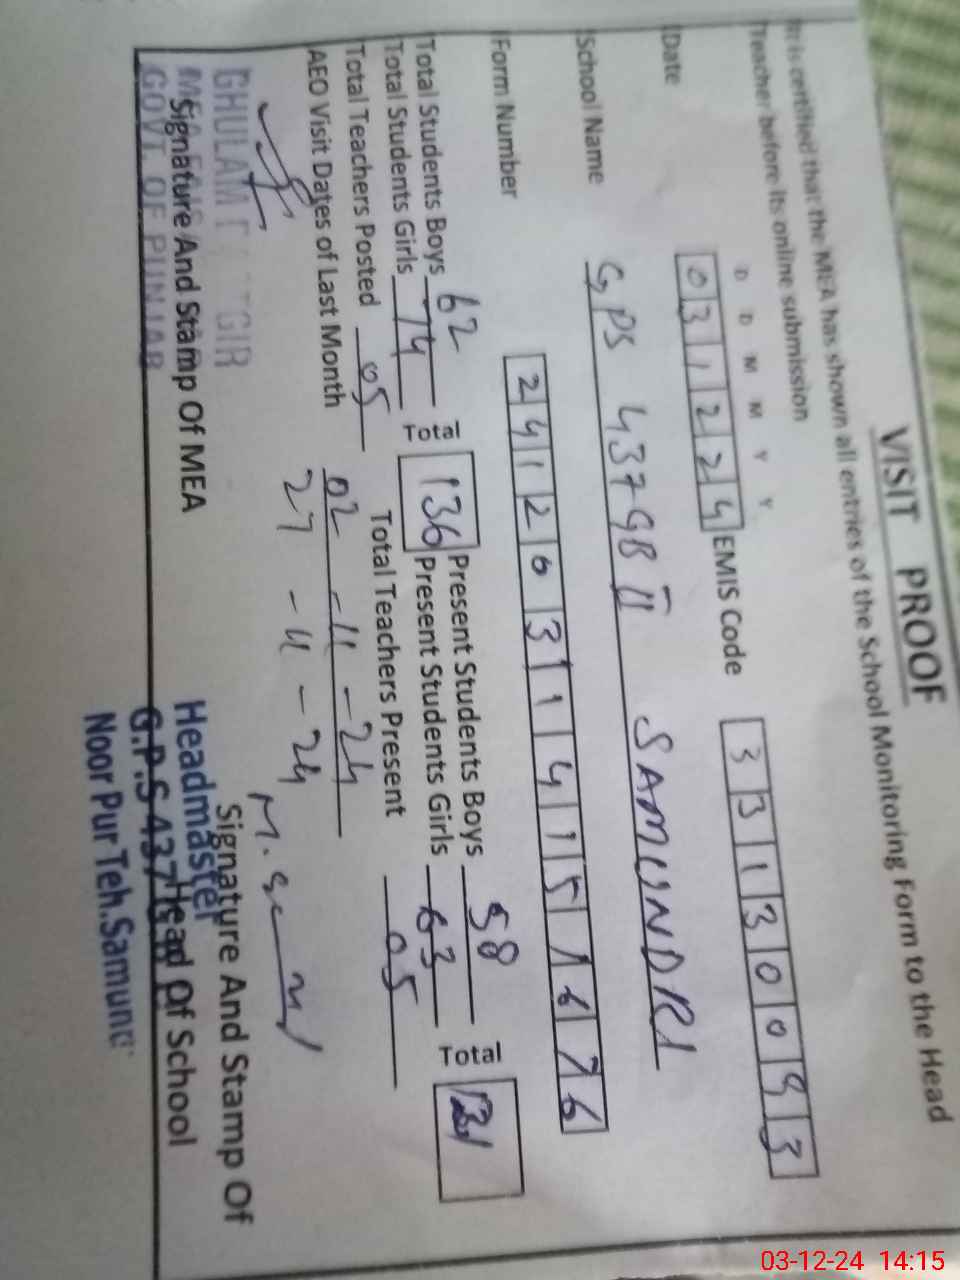 VISIT PROOF
It is certified that the MEA has shown all entries of the School Monitoring Form to the Head
Teacher before its online submission
D D M M Y Y
Date 0 3 1 2 2 4 EMIS Code 3 3 1 3 0 0 9 3
School Name GPS 437 GB II SAMUNDRI
Form Number 2 4 1 2 0 3 1 1 4 1 5 1 6 7 6
Total Students Boys 62 Total 136 Present Students Boys 58 Total
Total Students Girls 74 Present Students Girls 63
Total Teachers Posted 05 Total Teachers Present 05
AEO Visit Dates of Last Month 02-11-24
27-11-24
GHULAM
Signature And Stamp Of MEA
GOVT. OF PUNJAB
Signature And Stamp Of
Head of School
Headmaster
G.P.S 437
Noor Pur Teh.Samundri
03-12-24 14:15